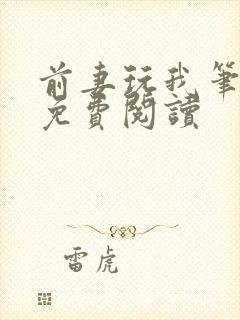 前妻玩我筆
免費閱讀
雷虎